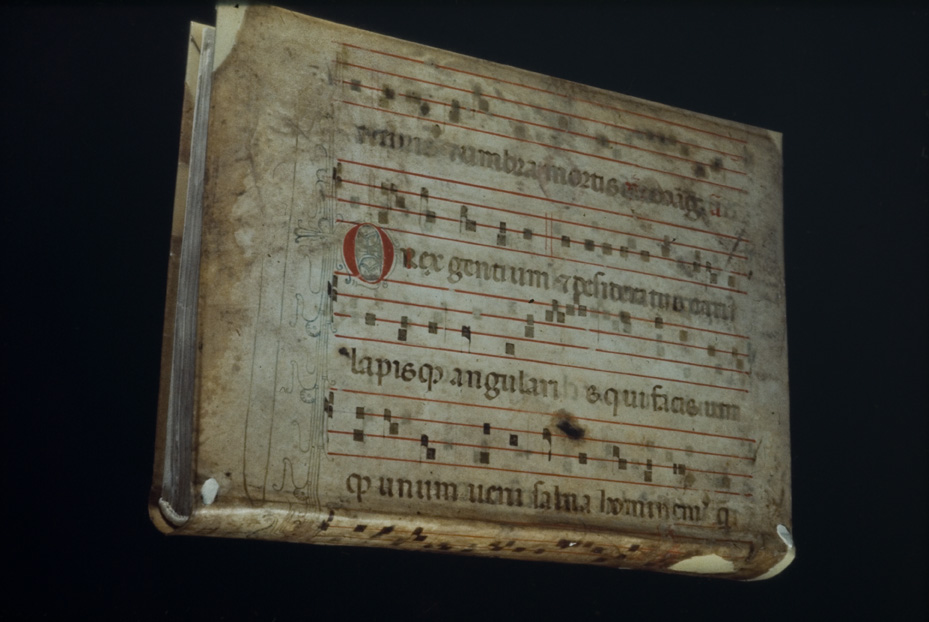 umbra mortis
O rex gentium & desideratus earū
lapisq; angularis qui facis utra
q; unum ueni salua hominem q